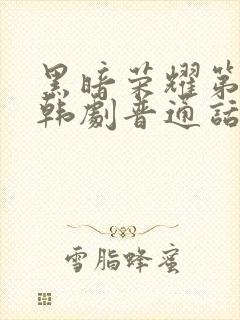 黑暗荣耀第
韩剧普通话
雪脂蜂蜜